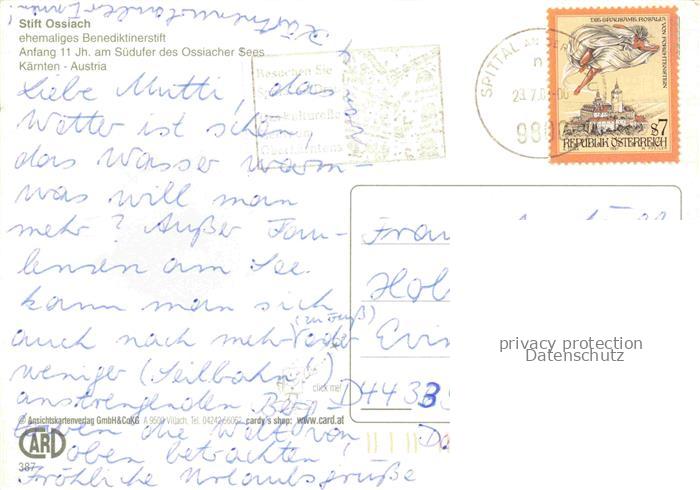 Stift Ossiach
ehemaliges Benediktinerstift
Anfang 11 Jh. am Südufer des Ossiacher Sees
Kärnten - Austria
Liebe Mutti, das
Wetter ist schön,
das Wasser warm –
was will man
mehr? Außer Fau-
lenzen am See
kann man sich
auch nach mehr oder
(zu Fuß)
weniger (Seilbahn!)
anstrengenden Berg-
die Welt von
oben betrachten!
Fröhliche Urlaubsgrüße
Besuchen Sie
Oberkärntens
SPITTAL AN DER
9800
DIE GRAUSAME ROSALIA
VON FORCHTENSTEIN
S7
REPUBLIK ÖSTERREICH
Frau
Hol
D 44 33
click me!
© Ansichtskartenverlag GmbH&CoKG A 9500 Villach, Tel. 04242-66052 cardy's shop: www.card.at
CARD
387
privacy protection
Datenschutz